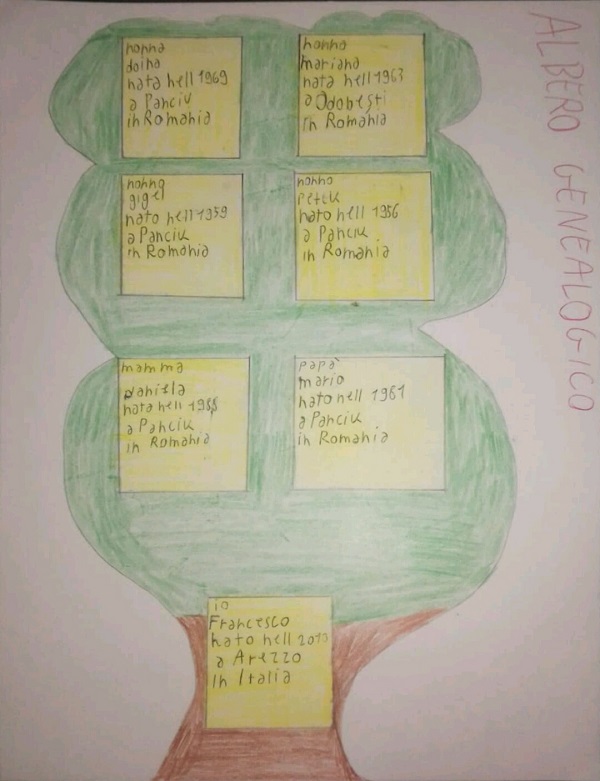 ALBERO GENEALOGICO
nonna
doina
nata nell 1969
a Panciu
in Romania
nonna
mariana
nata nell 1963
a Odobesti
in Romania
nonno
gigel
nato nell 1959
a Panciu
in Romania
nonno
nato nell 1956
a Panciu
in Romania
mamma
daniela
nata nell
a Panciu
in Romania
papà
mario
nato nell 1981
a Panciu
in Romania
io
Francesco
nato nell
a Arezzo
in Italia